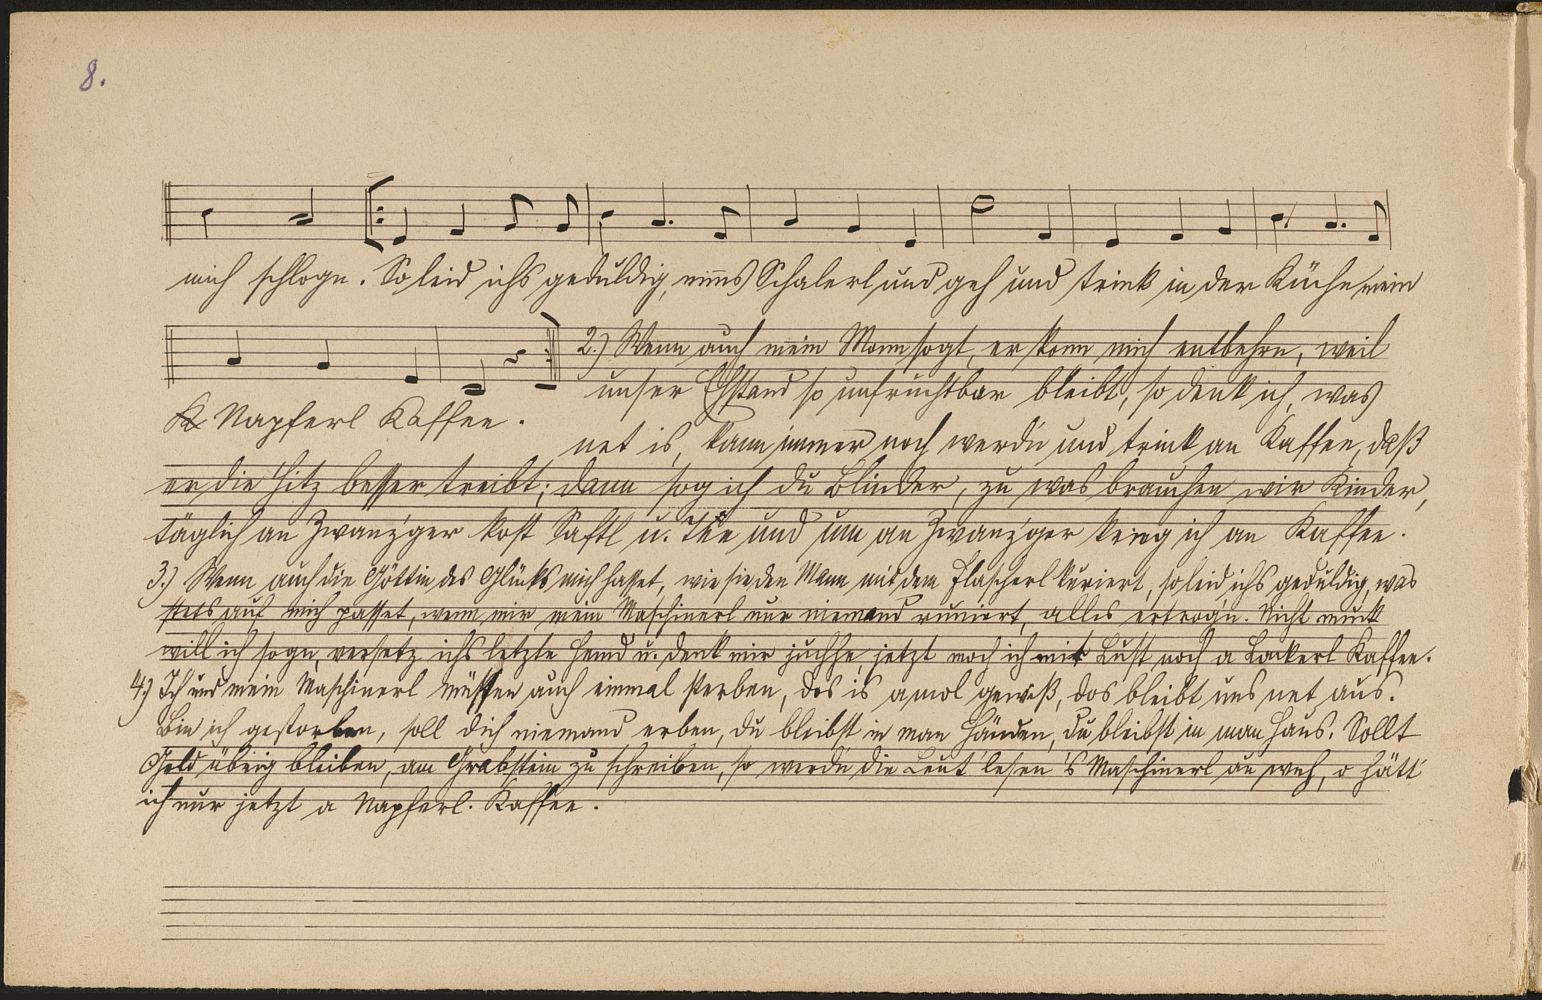 8.
mich schlogn. So leid ichs geduldig, nimms Schalerl und geh und trink in der Küche mein
Napferl Kaffee.
2.) Wenn auch mein Mann sogt, er konn mich entbehrn, weil
unser Ehstand so unfruchtbar bleibt, so denk ich, was
net is, kann immer noch werdn und trink an Kaffee, daß
er die Hitz besser treibt; dann sog ich du Blinder, zu was brauchen wir Kinder,
täglich an Zwanz'ger kost Saftl u. Tee und um an Zwanz'ger krieg ich an Kaffee.
3.) Wenn auch die Göttin des Glücks mich hasset, wie sie den Mann mit dem Flascherl kuriert, so leid ichs geduldig, was
stets auf mich passet, wenn mir mein Maschinerl nur niemand ruiniert, alles ertrogn. Nicht muck
will ich sogn, versetz ichs letzte Hemd u. denk mir juchhe, jetzt moch ich mit Lust noch a Lackerl Kaffee.
4.) Ich und mein Maschinerl müssen auch einmal sterben, dos is amol gewiß, dos bleibt uns net aus.
Bin ich gestorben, soll dich niemand erben, du bleibst in man Händen, du bleibst in man Haus. Sollt
Geld übrig bleiben, am Grabstein zu schreiben, so werdn die Leut' lesen 's Maschinerl au weh, o hätt'
ich nur jetzt a Napferl. Kaffee.